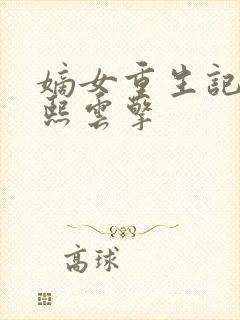 嫡女重生記
熙雲擎
高球